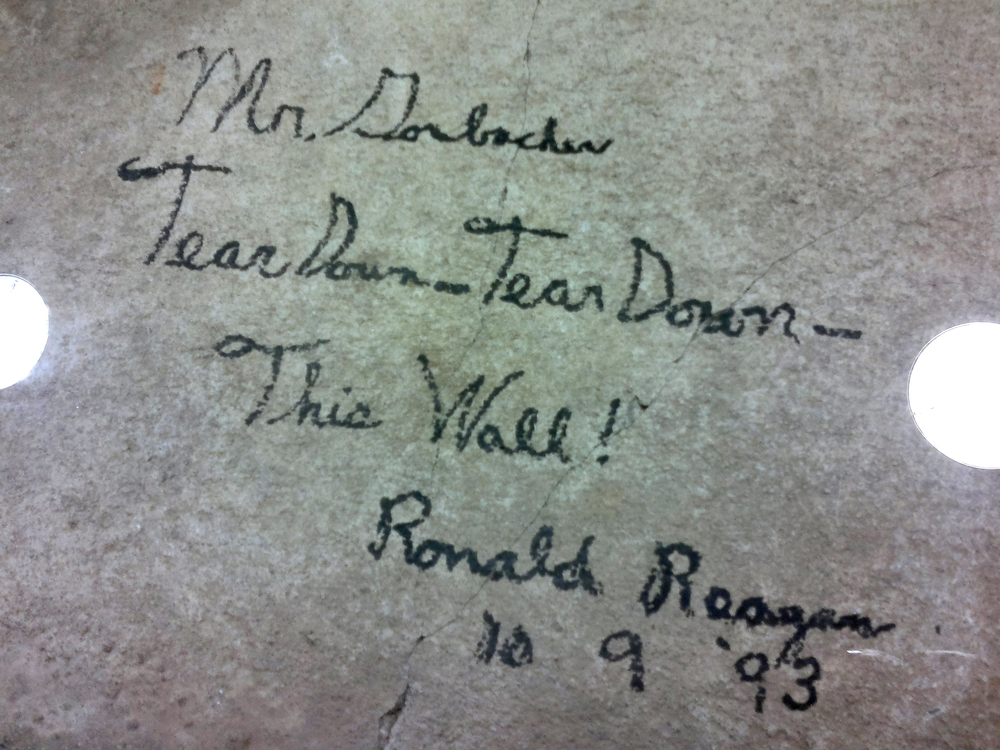 Mr. Gorbachev
Tear Down — Tear Down —
This Wall!
Ronald Reagan
10 9 '93